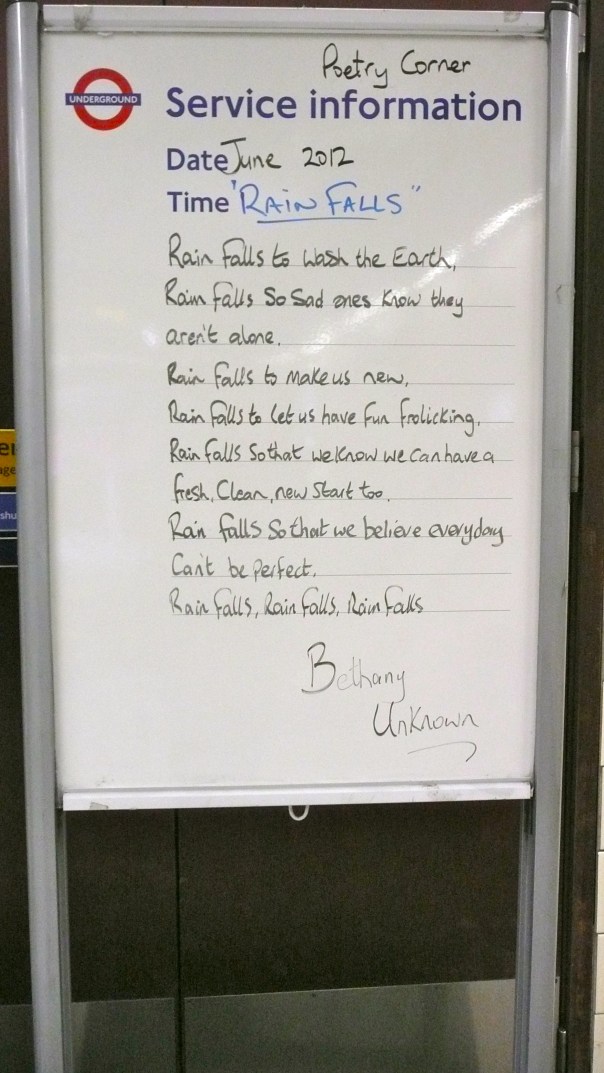 Poetry Corner
UNDERGROUND
Service information
Date June 2012
Time "RAIN FALLS"
Rain falls to wash the Earth,
Rain falls So Sad ones know they
aren't alone.
Rain falls to make us new,
Rain falls to let us have fun frolicking,
Rain falls So that we know we can have a
fresh, Clean, new Start too.
Rain falls So that we believe everyday
Can't be perfect.
Rain falls, Rain falls, Rain falls
Bethany
Unknown